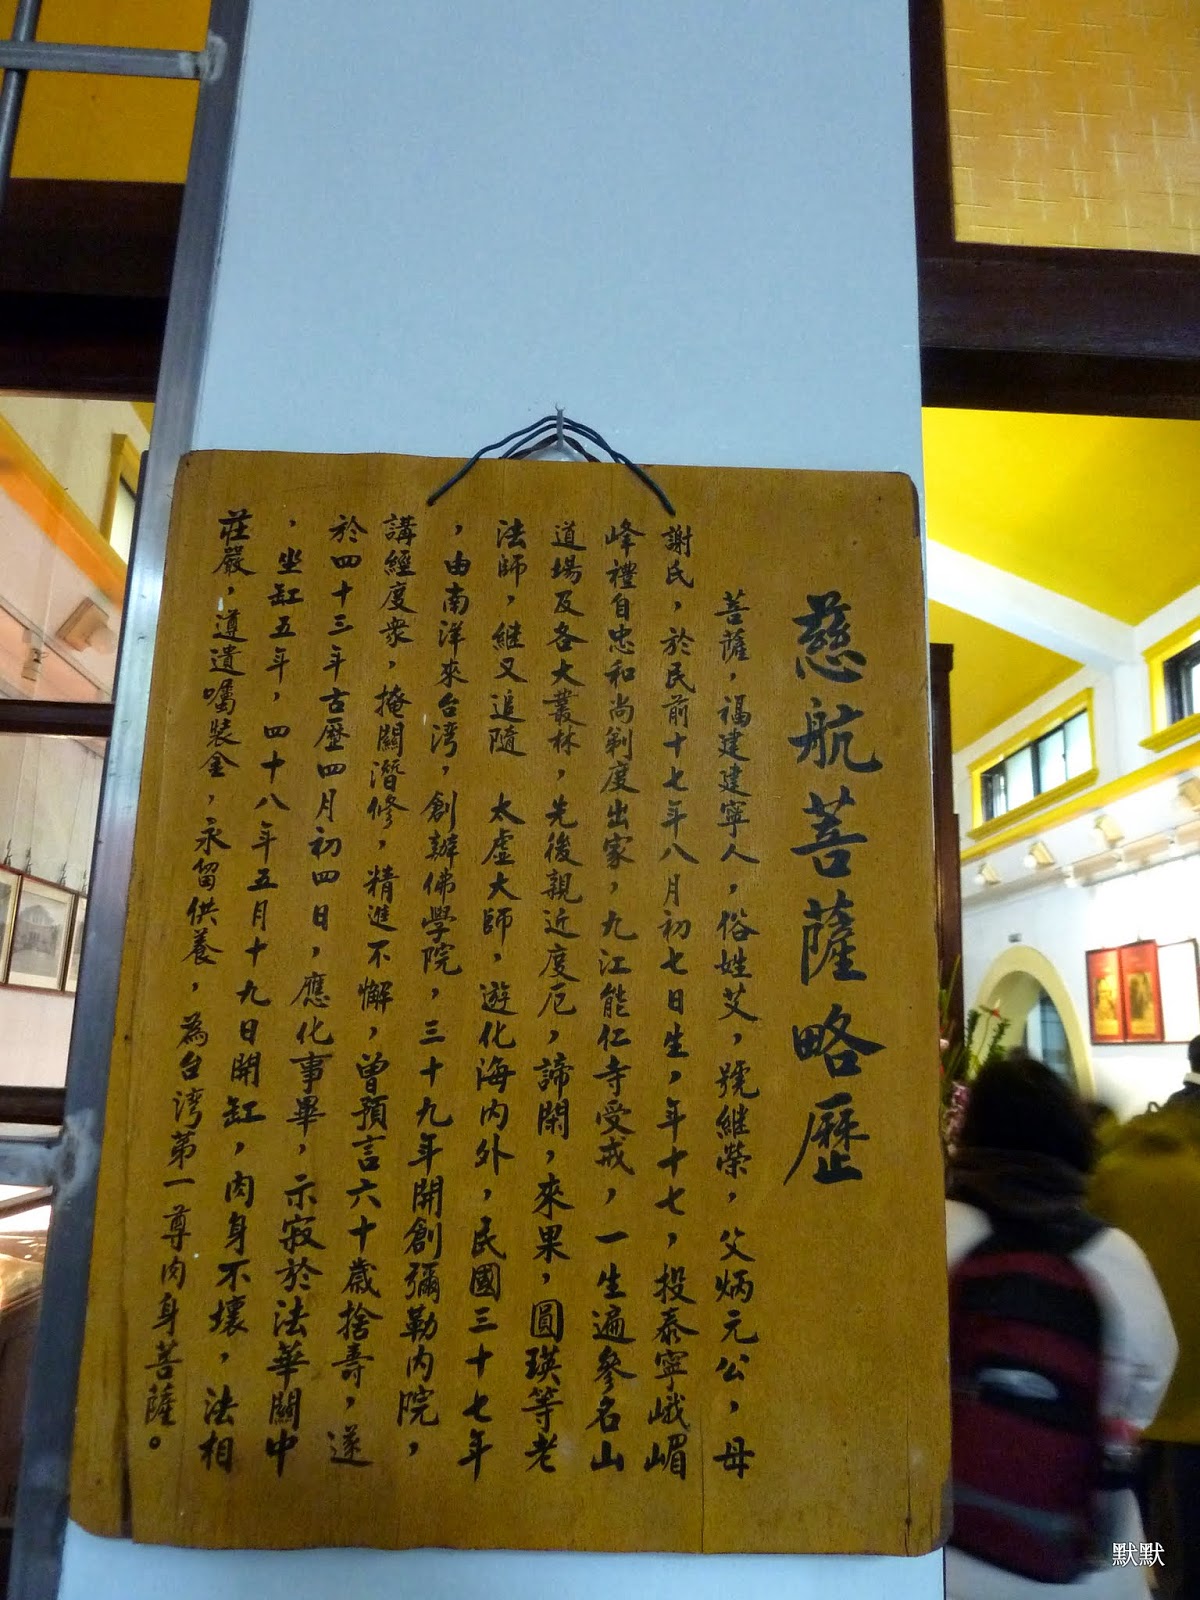 慈航菩薩略歷
菩薩，福建建寧人，俗姓艾，號繼榮，父炳元公，母
謝氏，於民前十七年八月初七日生，年十七，投泰寧峨嵋
峰禮自忠和尚剃度出家，九江能仁寺受戒，一生遍參名山
道場及各大叢林，先後親近度厄，諦閑，來果，圓瑛等老
法師，繼又追隨　太虛大師，遊化海內外，民國三十七年
，由南洋來台湾，創辦佛學院，三十九年開創彌勒內院，
講經度衆，掩關潛修，精進不懈，曾預言六十歲捨壽，遂
於四十三年古歷四月初四日，應化事畢，示寂於法華關中
，坐缸五年，四十八年五月十九日開缸，肉身不壞，法相
莊嚴，遵遺囑裝金，永留供養，為台湾第一尊肉身菩薩。
默默